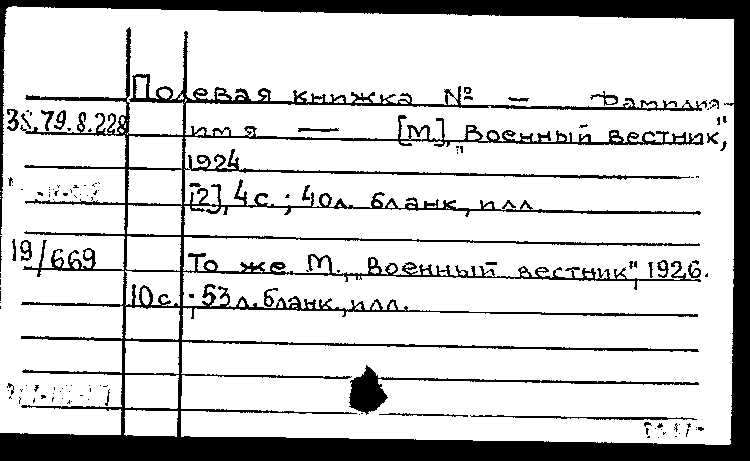 Полевая книжка № — Фамилия-
38.79.8.228
имя — [М], "Военный вестник",
1924.
[2], 4 с.; 40 л. бланк., илл.
19/669
То же. М., "Военный вестник", 1926.
10 с.; 53 л. бланк., илл.